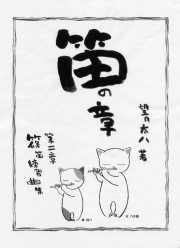 笛の章
望月太八 著
第二章
篠笛 練習曲集